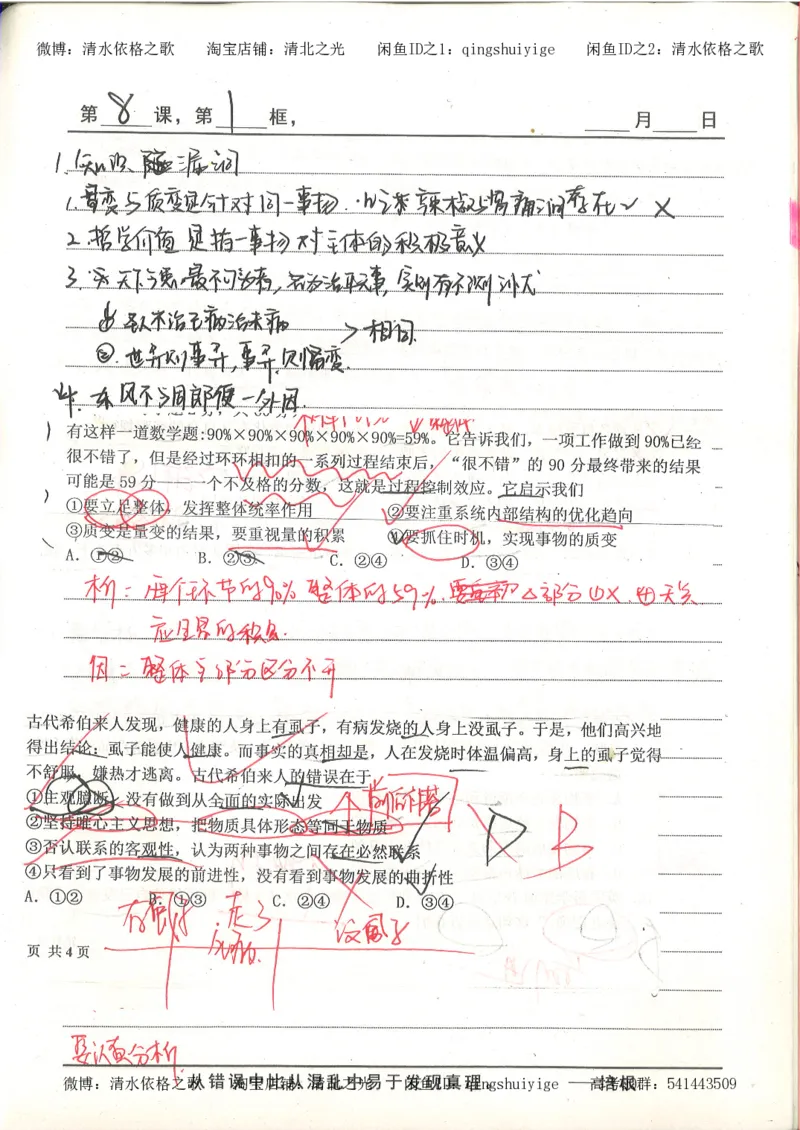 微博：清水依格之歌 淘宝店铺：清北之光 闲鱼ID之1：qingshuiyige 闲鱼ID之2：清水依格之歌
第 8 课，第 1 框， 月 日
1、知识、漏洞
1.量变与质变是针对同一事物. ×
2.哲学价值是指一事物对主体的积极意义
3. 天下之患最不可为者，名为治平无事，实则有不测之忧
圣人不治已病治未病 > 相同.
②.世异则事异，事异则备变.
4.东风不与周郎便—外因.
有这样一道数学题:90%×90%×90%×90%×90%=59%。它告诉我们，一项工作做到 90%已经
很不错了，但是经过环环相扣的一系列过程结束后，“很不错”的 90 分最终带来的结果
可能是 59 分——一个不及格的分数，这就是过程控制效应。它启示我们
①要立足整体，发挥整体统率作用 ②要注重系统内部结构的优化趋向
③质变是量变的结果，要重视量的积累 ④要抓住时机，实现事物的质变
A．①② B．②③ C．②④ D．③④
析：每个环节的90% 整体的59%. 部分 ①×. ④无关
应是量的积累.
因：整体与部分区分不开
古代希伯来人发现，健康的人身上有虱子，有病发烧的人身上没虱子。于是，他们高兴地
得出结论：虱子能使人健康。而事实的真相却是，人在发烧时体温偏高，身上的虱子觉得
不舒服，嫌热才逃离。古代希伯来人的错误在于
①主观臆断，没有做到从全面的实际出发 前后矛盾
②坚持唯心主义思想，把物质具体形态等同于物质 D B
③否认联系的客观性，认为两种事物之间存在必然联系
④只看到了事物发展的前进性，没有看到事物发展的曲折性
A．①② B．①③ C．②④ D．③④
有虱子 走了 没虱子
页 共 4 页
要认真分析.
从错误中比从混乱中易于发现真理。 ——培根
微博：清水依格之歌 淘宝店铺：清北之光 闲鱼ID：qingshuiyige 高考群：541443509